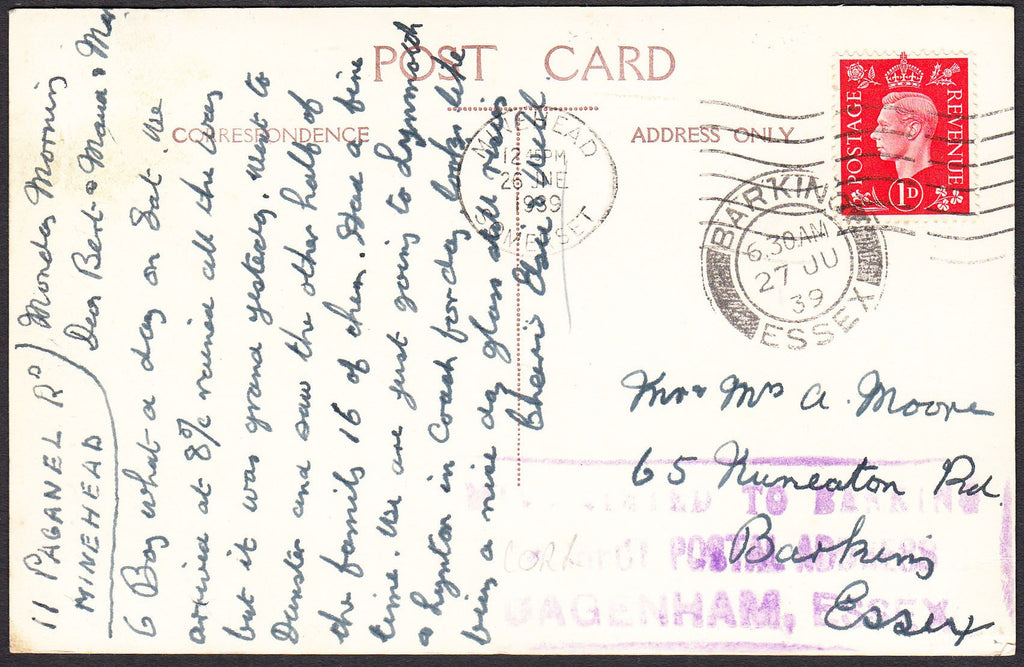 POST CARD
CORRESPONDENCE
ADDRESS ONLY
11 PAGANEL RD
MINEHEAD
Monday Morning
Dear Bert & Mona & Ma
O Boy what a day on Sat. We
arrived at 8 rained all the way
but it was grand yesterday. Went to
Dunster and saw the other half of
the family 16 of them. Had a fine
time. We are just going to Lynmouth
& Lynton in Coach for day looks like
being a nice day glass still rising
Cheerio Elsie & Will
MINEHEAD
12 PM
26 JNE
1939
SOMERSET
POSTAGE
REVENUE
1D
BARKING
6.30AM
27 JU
39
ESSEX
Mr & Mrs A. Moore
65 Nuneaton Rd.
Barking
Essex.
TO BARKING
CORRECT POSTAL ADDRESS
DAGENHAM, ESSEX